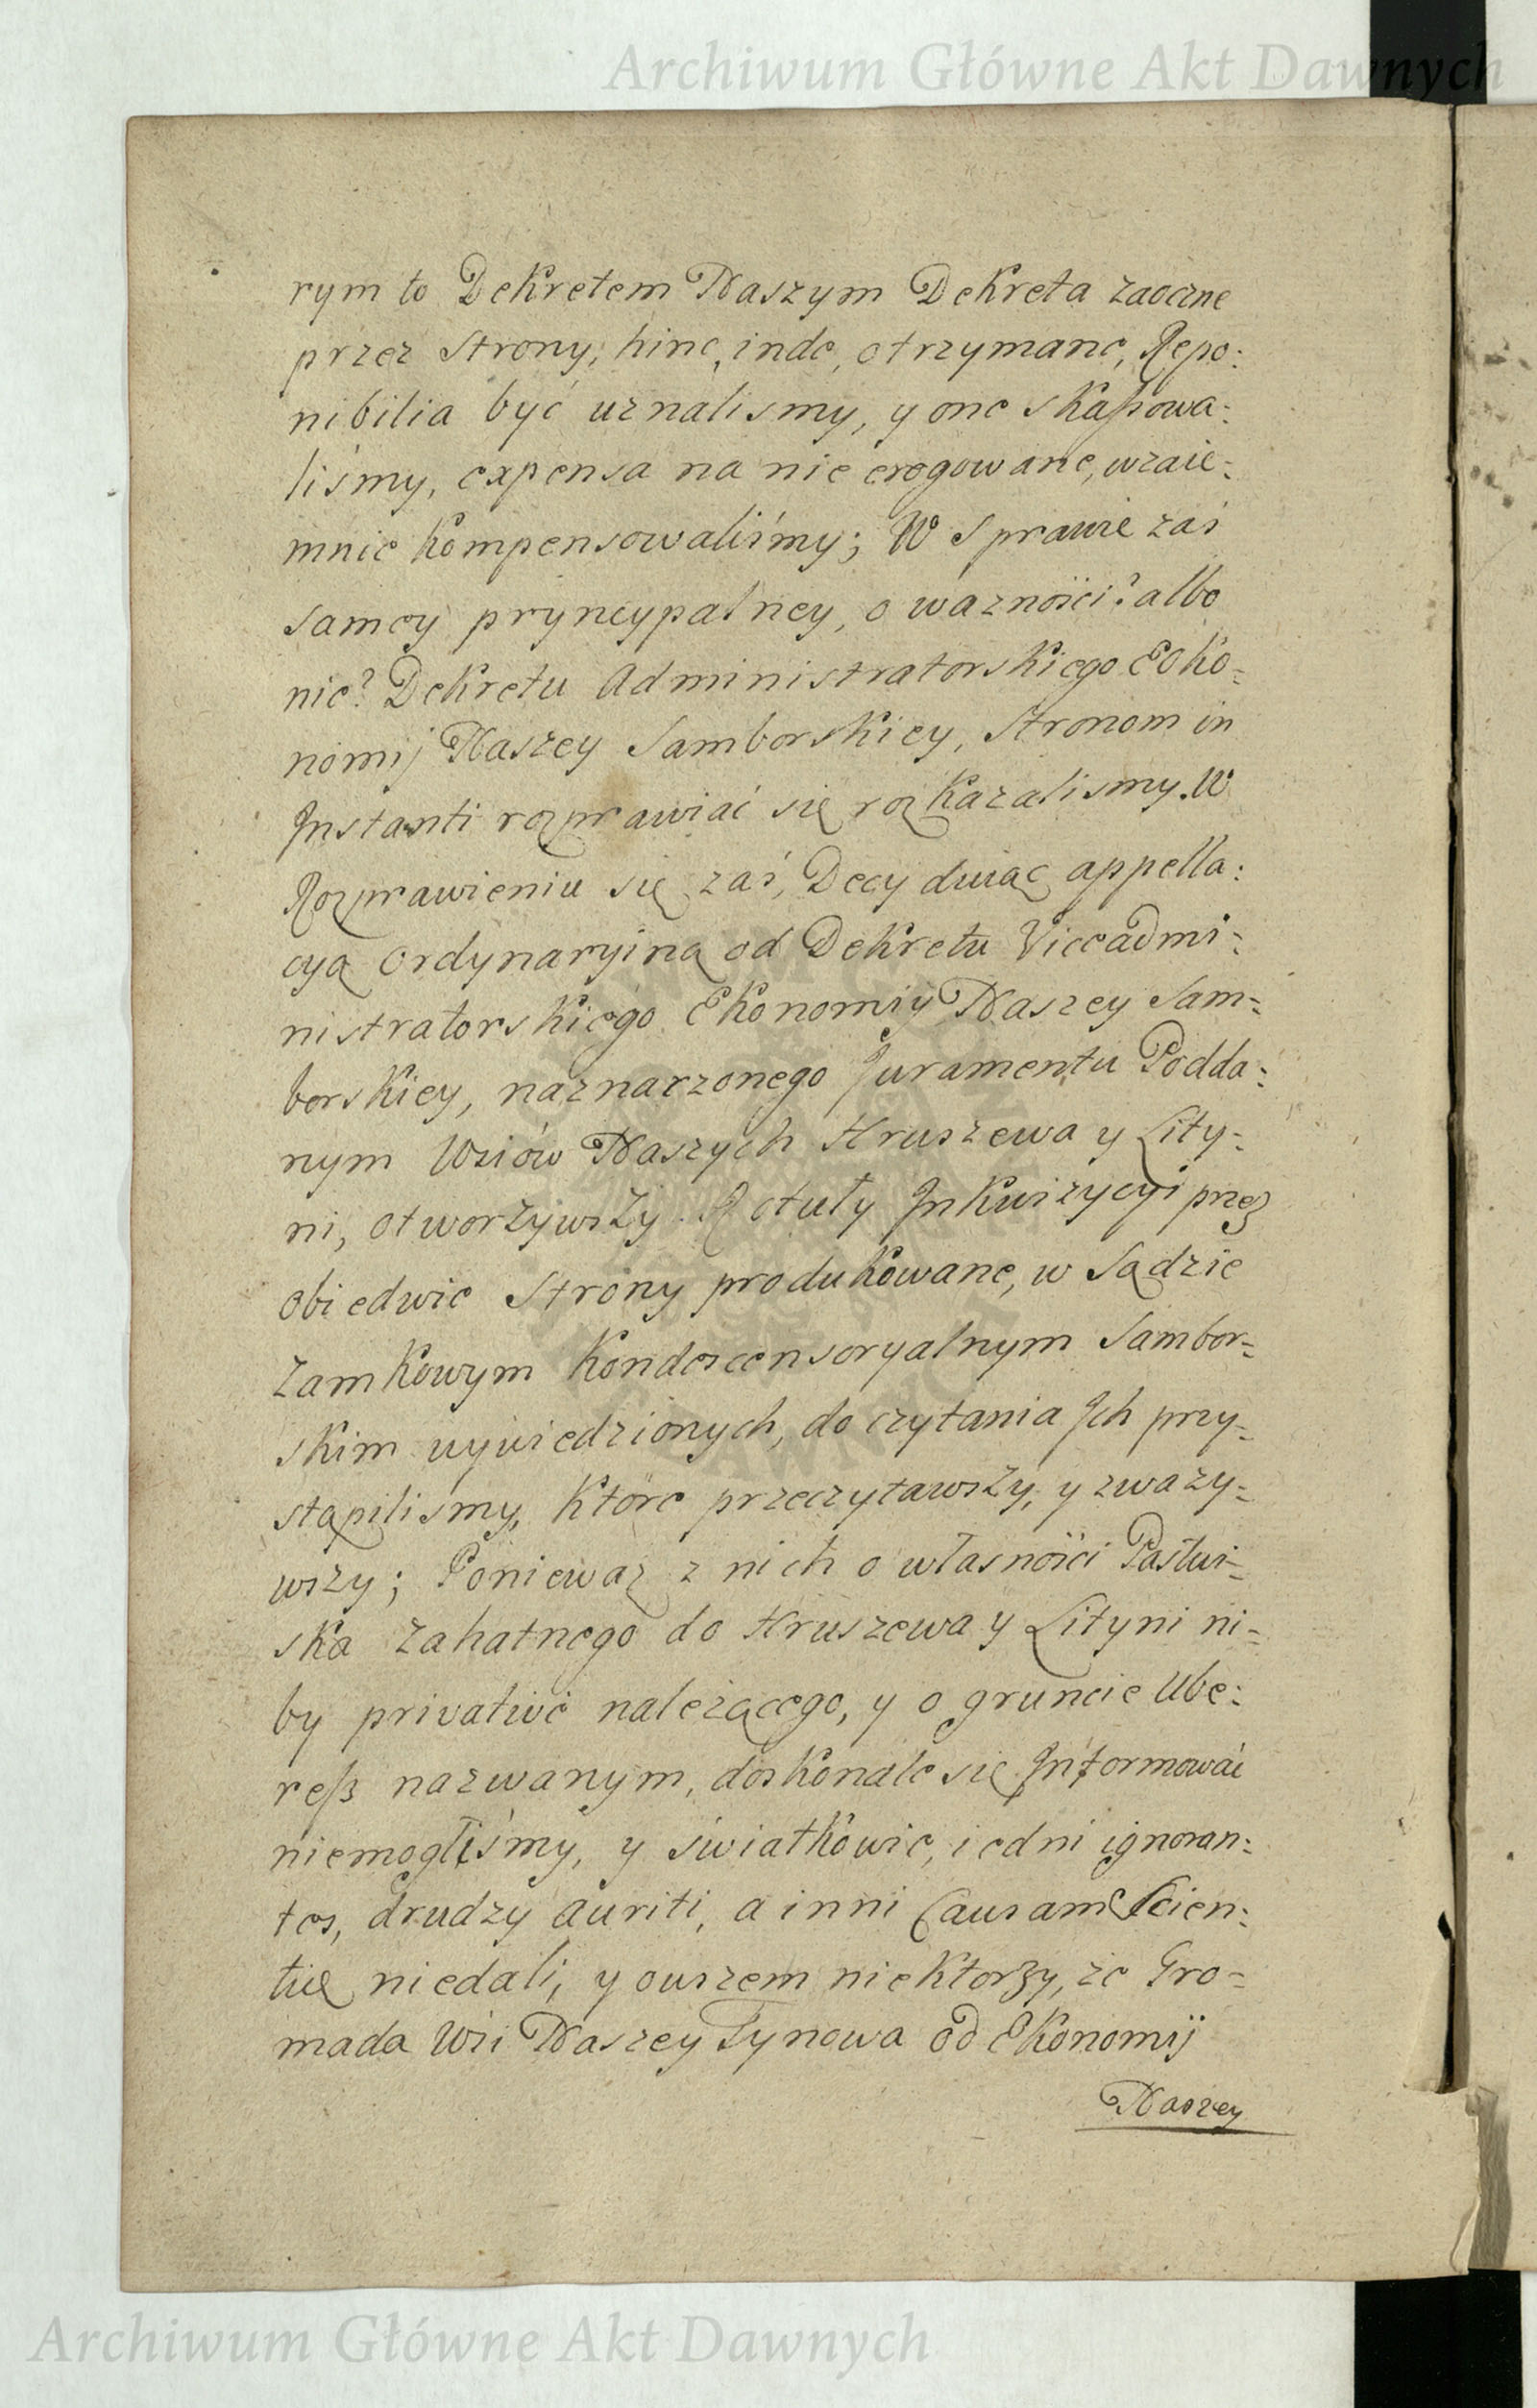 Archiwum Główne Akt Dawnych
rym to Dekretem Naszym Dekreta zaoczne
przez Strony, hinc, inde, otrzymane, Repo:
nibilia być uznalismy, y one skaßowa:
liśmy, expensa na nie erogowane, wzaie:
mnie kompensowaliśmy; W Sprawie zaś
samey pryncypalney, o ważności? albo
nie? Dekretu Administratorskiego Eko-
nomij Naszey Samborskiey, Stronom in
Instanti rozprawiać się rozkazalismy. W
Rozprawieniu się zaś, Decyduiąc appella:
cyą Ordynaryiną od Dekretu Viceadmi:
nistratorskiego Ekonomiy Naszey Sam=
borskiey, naznaczonego Juramentu Podda:
nym Wsiów Naszych Hruszewa y Lity=
ni, otworzywszy Rotuły Inkwizycyi przez
obiedwie Strony produkowane, w Sądzie
Zamkowym Kondescensoryalnym Sambor=
skim wywiedzionych, do czytania Ich przy=
stąpilismy, które przeczytawszy, y zważy=
wszy; Ponieważ z nich o własności Pastwi=
ska Zahatnego do Hruszewa y Lityni ni=
by privativè należącego, y o gruncie Ube:
reß nazwanym, doskonale się Informować
niemogliśmy, y światkowie, iedni ignoran:
tes, drudzy auriti, a inni Causam Scien:
tiæ niedali, y owszem niektorzy, że Gro=
mada Wsi Naszey Tynowa od Ekonomij
Naszey
Archiwum Główne Akt Dawnych